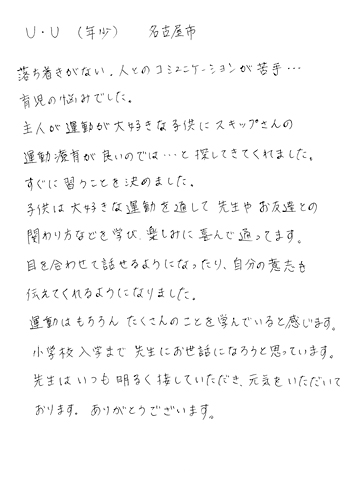 U・U （年少） 名古屋市
落ち着きがない、人とのコミュニケーションが苦手…
育児の悩みでした。
主人が運動が大好きな子供にスキップさんの
運動療育が良いのでは…と探してきてくれました。
すぐに習うことを決めました。
子供は大好きな運動を通して先生やお友達との
関わり方などを学び、楽しみに喜んで通ってます。
目を合わせて話せるようになったり、自分の意志も
伝えてくれるようになりました。
運動はもちろんたくさんのことを学んでいると感じます。
小学校入学まで先生にお世話になろうと思っています。
先生はいつも明るく接していただき、元気をいただいて
おります。ありがとうございます。